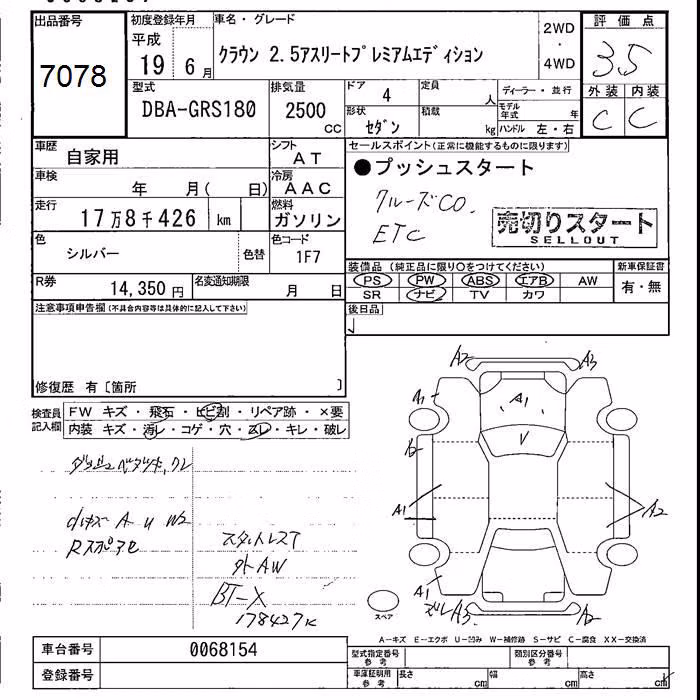 出品番号
7078
初度登録年月
平成
19 年 6 月
車名・グレード
クラウン 2.5アスリートプレミアムエディション
2WD
・
4WD
評価点
3.5
外装 内装
C C
型式
DBA-GRS180
排気量
2500
CC
ドア
4
定員
人
形状
セダン
積載
kg
ディーラー・並行
モデル年式 年
ハンドル 左・右
車歴
自家用
シフト
AT
車検
年 月( 日)
冷房
AAC
走行
17万8千426 km
燃料
ガソリン
色
シルバー
色替
色コード
1F7
R券
14,350 円
名変通知期限
月 日
セールスポイント(正常に機能するものに限ります)
●プッシュスタート
クルーズCO.
ETC
売切りスタート
SELLOUT
装備品 (純正品に限り○をつけてください)
新車保証書
PS PW ABS エアB AW
SR ナビ TV カワ
有・無
注意事項申告欄(不具合内容等は具体的に記入して下さい)
後日品
修復歴 有〔箇所 〕
検査員記入欄
FW キズ・飛石・ヒビ割・リペア跡・×要
内装 キズ・汚レ・コゲ・穴・スレ・キレ・破レ
ダッシュベタツキ,ワレ
A U W2
スタットレスT
外AW
BT-X
178427K
A2 A3
A1 A1
V
A1 A2
A1
ズレA3 A2
スペア
A-キズ E-エクボ U-凹み W-補修跡 S-サビ C-腐食 XX-交換済
車台番号
0068154
登録番号
型式指定番号
参考
類別区分番号
参考
車庫証明用
参考
長さ cm 幅 cm 高さ cm